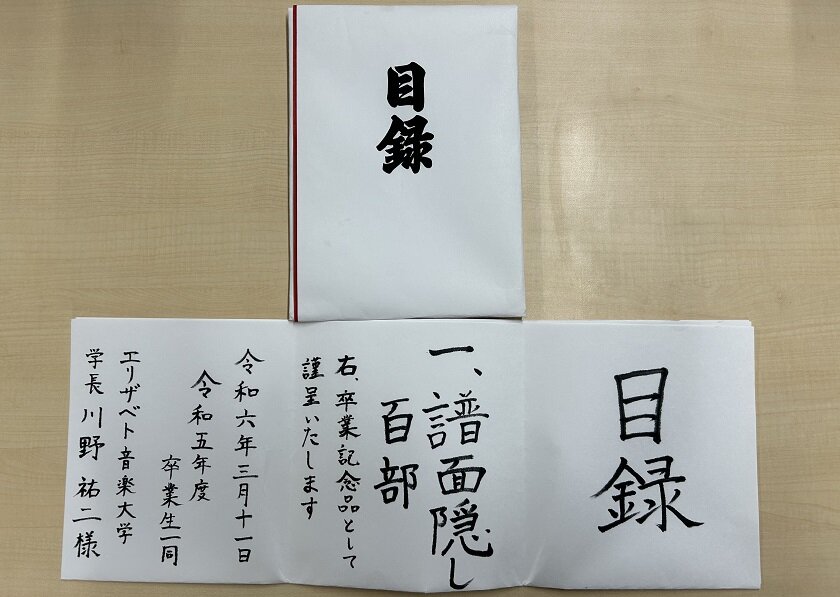 目録
目録
一、譜面隠し
百部
右、卒業記念品として
謹呈いたします
令和六年三月十一日
令和五年度
卒業生一同
エリザベト音楽大学
学長 川野 祐二様